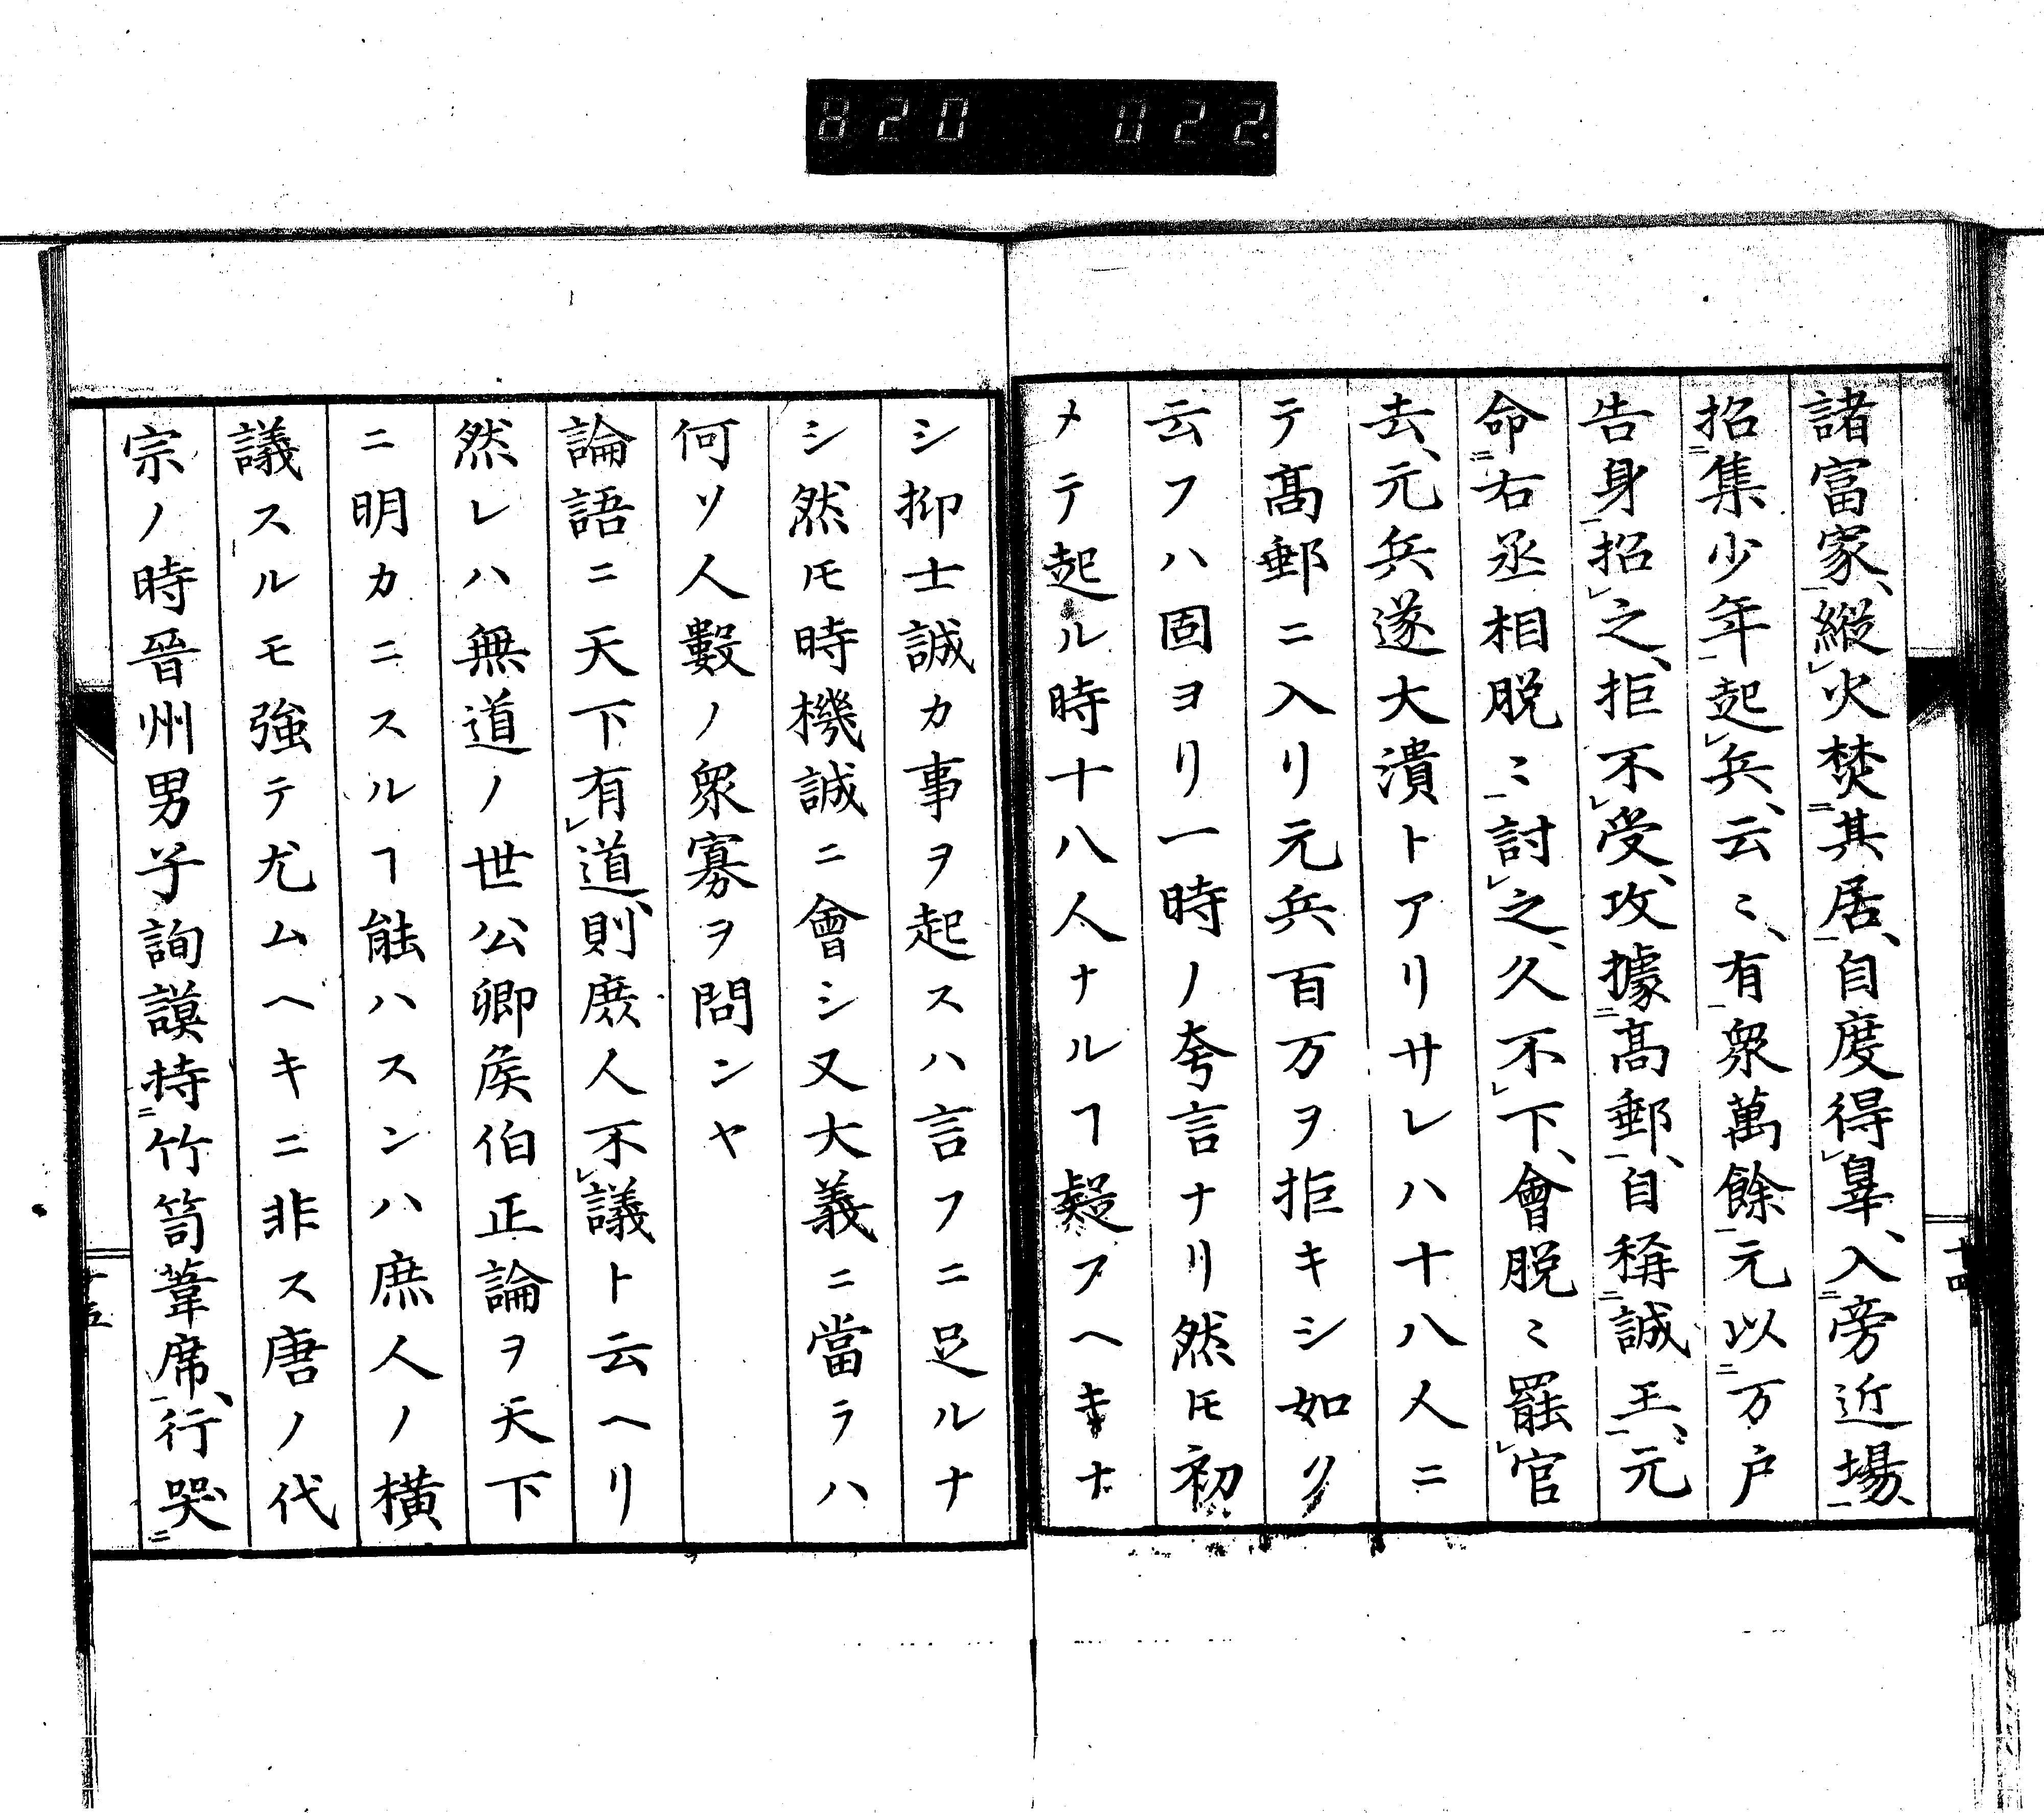 820 022.
十四
諸富家、縦火焚其居、自度得辠、入旁近場、
招集少年起兵、云〻、有衆萬餘元以万戸
告身招之、拒不受、攻據髙郵、自稱誠王、元
命右丞相脱〻討之、久不下、會脱〻罷官
去、元兵遂大潰トアリサレハ十八人ニ
テ髙郵ニ入リ元兵百万ヲ拒キシ如ク
云フハ固ヨリ一時ノ夸言ナリ然𪜈初
メテ起ル時十八人ナルヿ疑フヘキナ
シ抑士誠カ事ヲ起スハ言フニ足ルナ
シ然𪜈時機誠ニ會シ又大義ニ當ラハ
何ソ人數ノ衆寡ヲ問ンヤ
論語ニ天下有道、則庶人不議ト云ヘリ
然レハ無道ノ世公卿矦伯正論ヲ天下
ニ明カニスルヿ能ハスンハ庶人ノ横
議スルモ強テ尤ムヘキニ非ス唐ノ代
宗ノ時晉州男子詢謨持竹笥葦席、行哭
十五